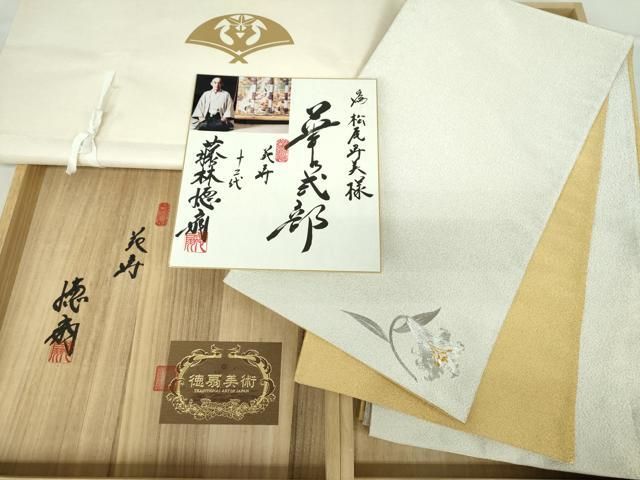 為 松尾寿美様
華式部
花寿
十三代
藤林徳扇
花寿
徳扇
徳扇美術
TRADITIONAL ART OF JAPAN